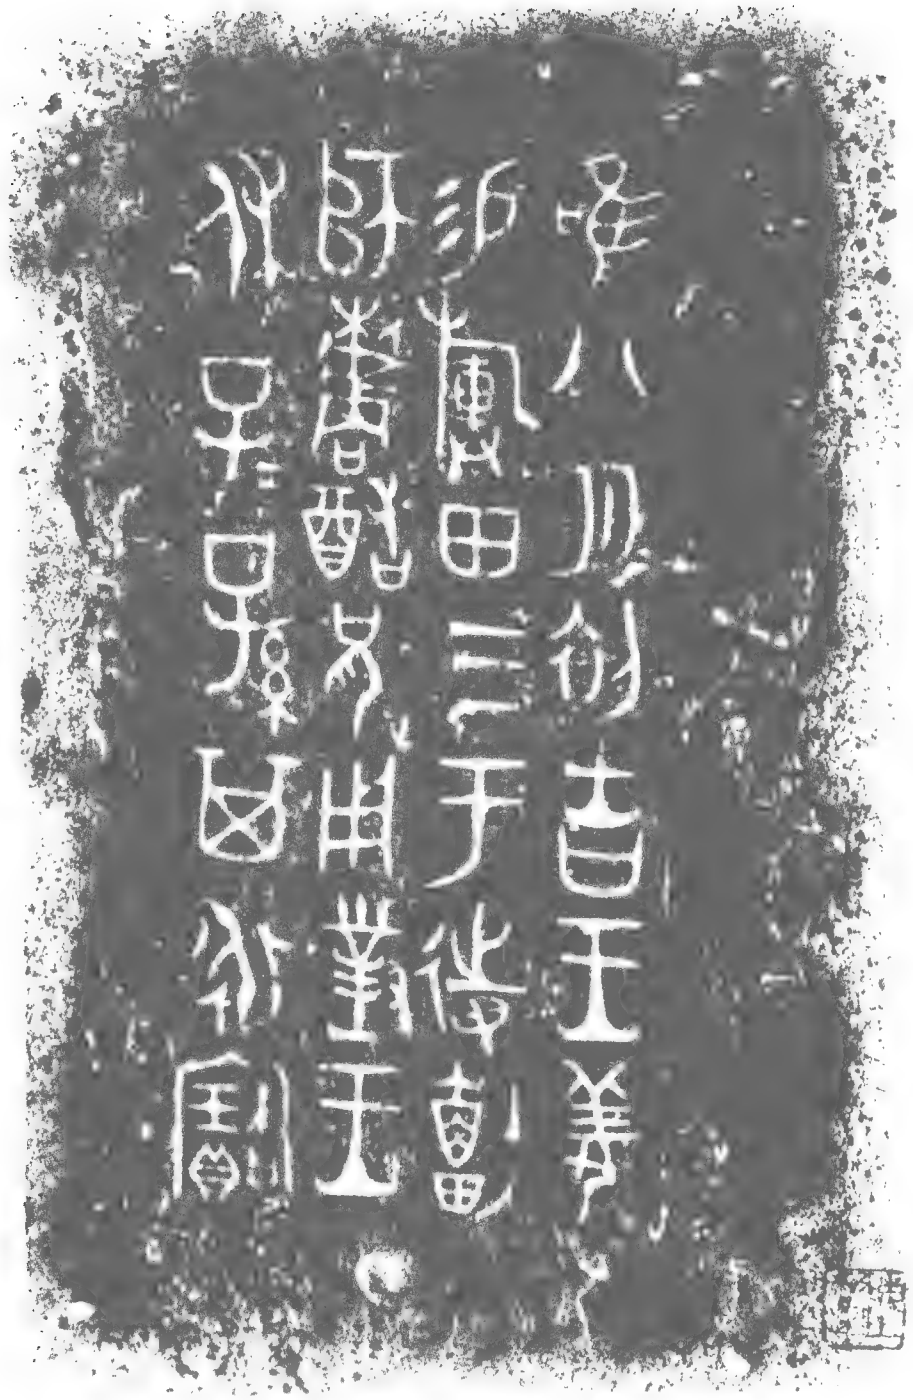 唯八月初吉王姜
易旟田三于待劃
師酷兄用對王
休子=孫其永寶